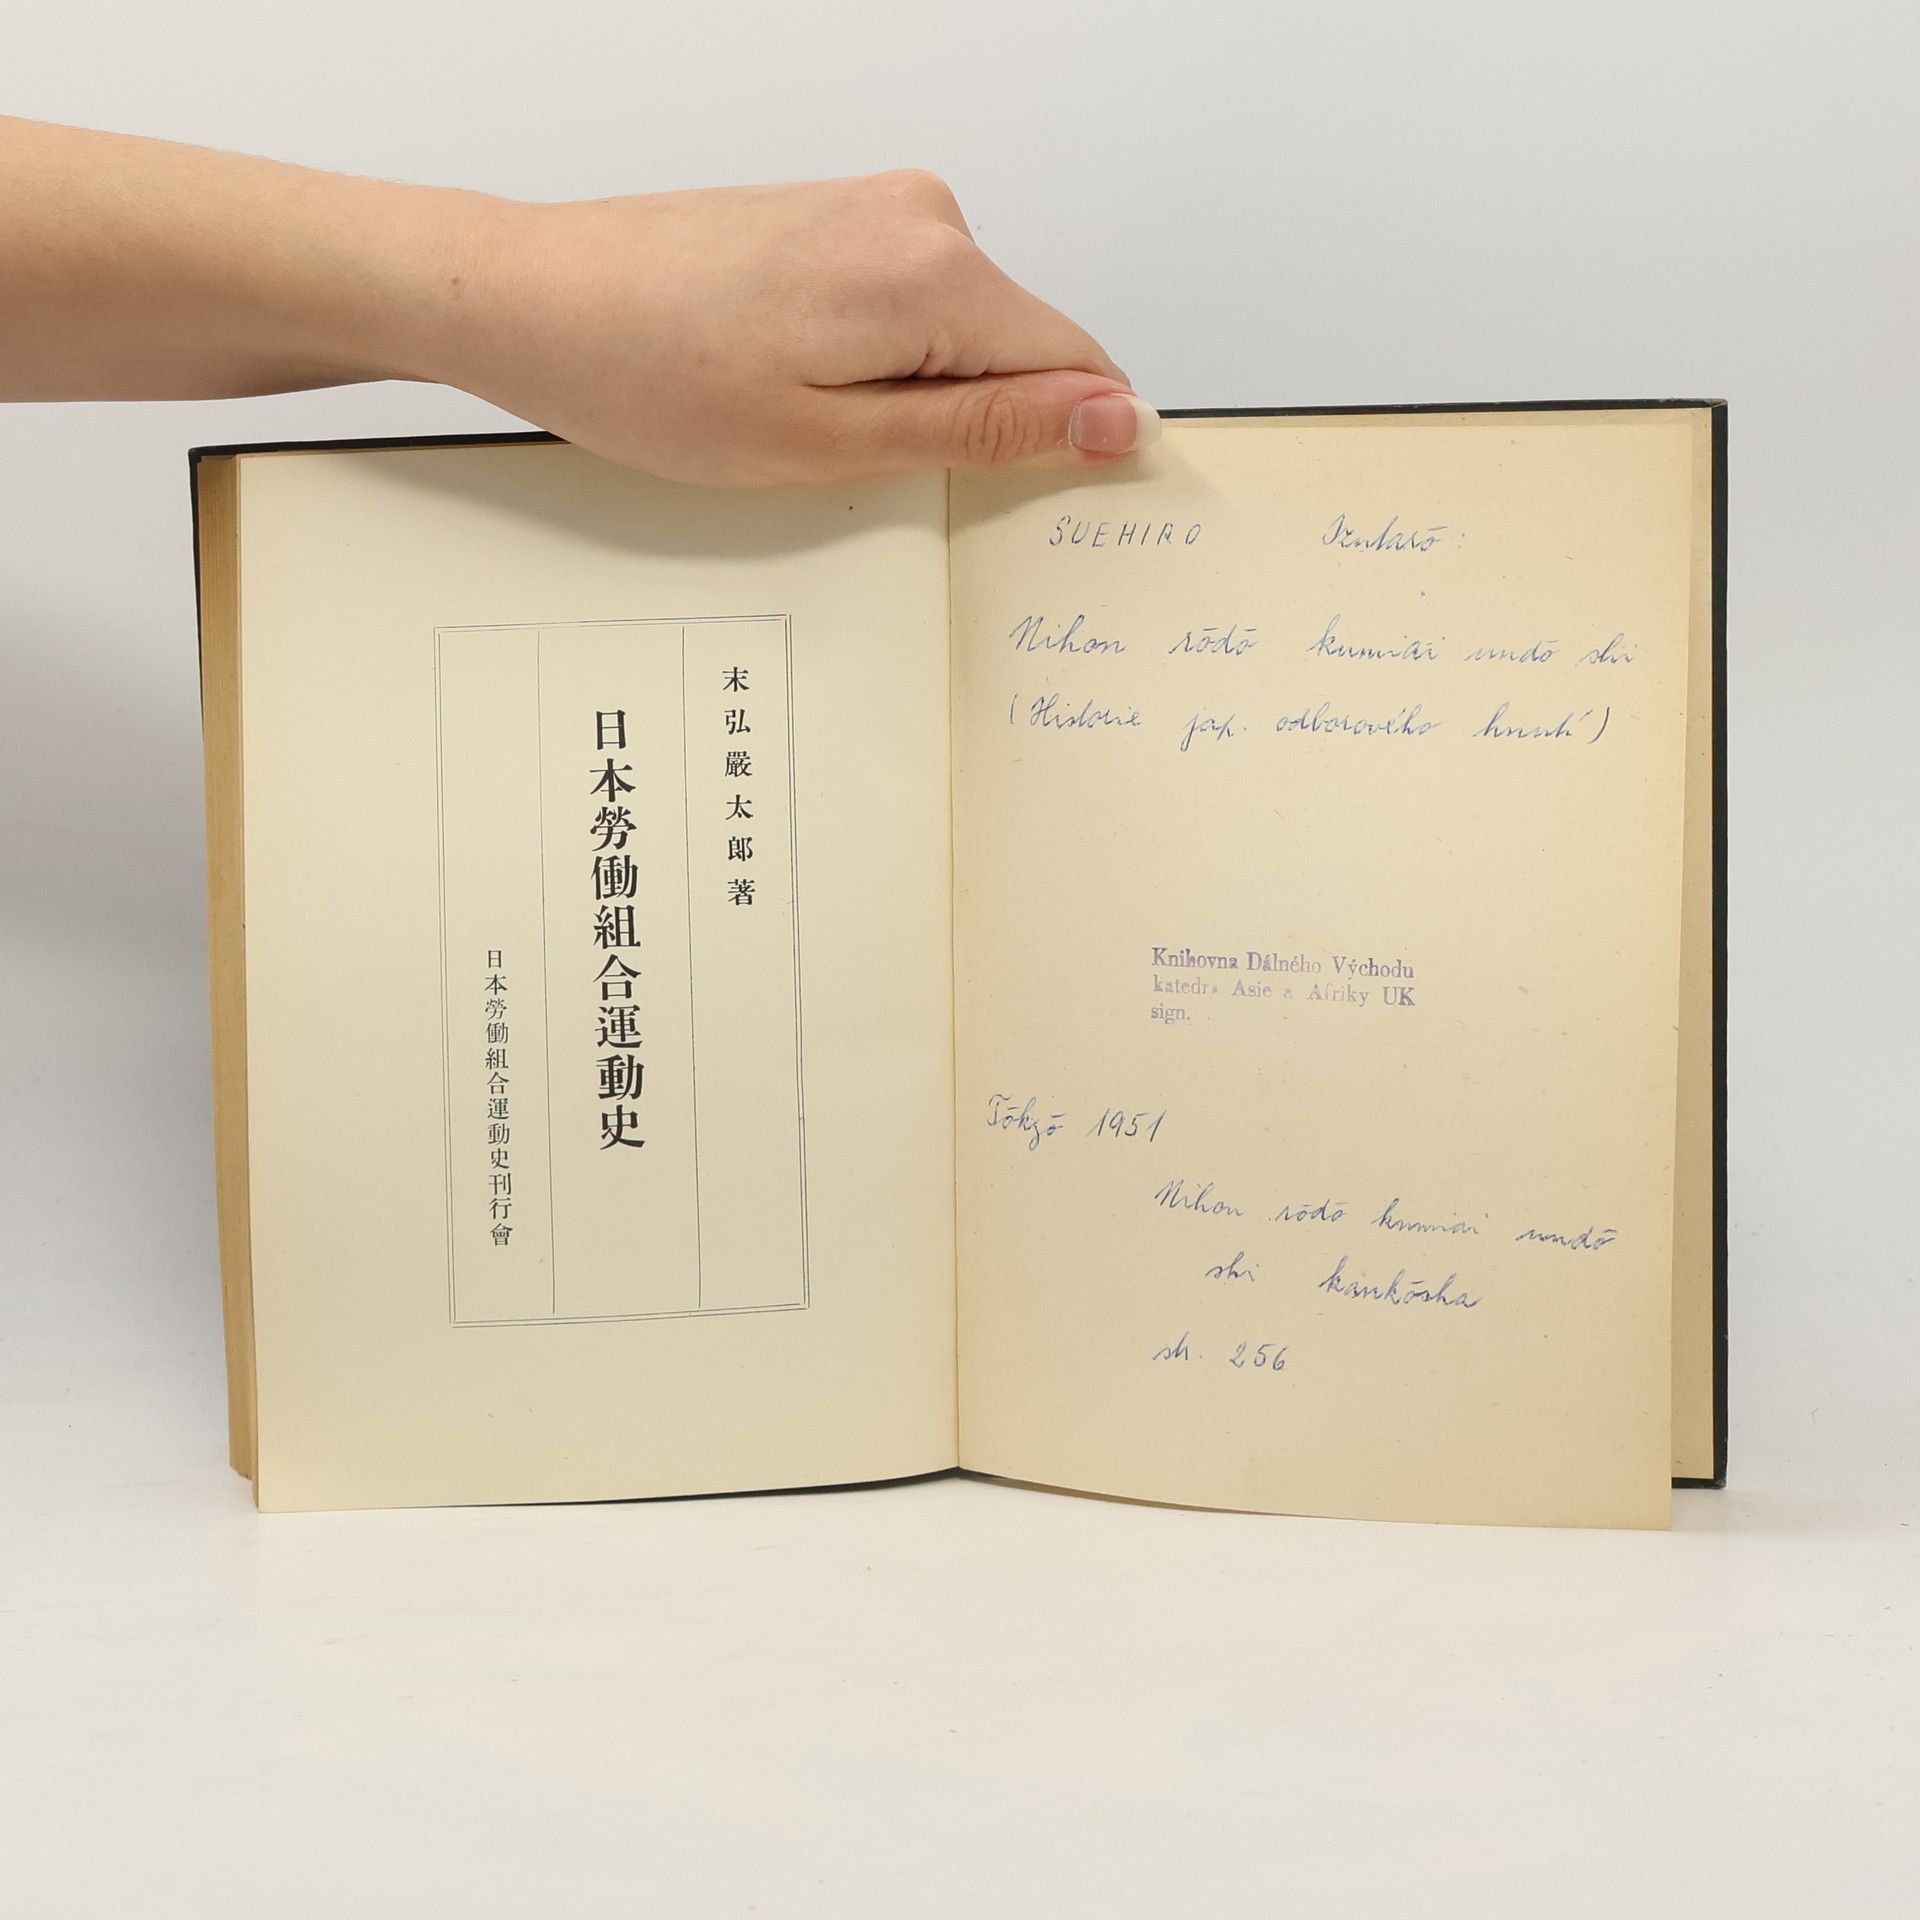 末弘嚴太郎著
日本勞働組合運動史
日本勞働組合運動史刊行會
SUEHIRO Izutarō:
Nihon rōdō kumiai undō shi
(Historie jap. odborového hnutí)
Knihovna Dálného Východu
katedra Asie a Afriky UK
sign.
Tōkyō 1951
Nihon rōdō kumiai undō
shi kankōsha
str. 256